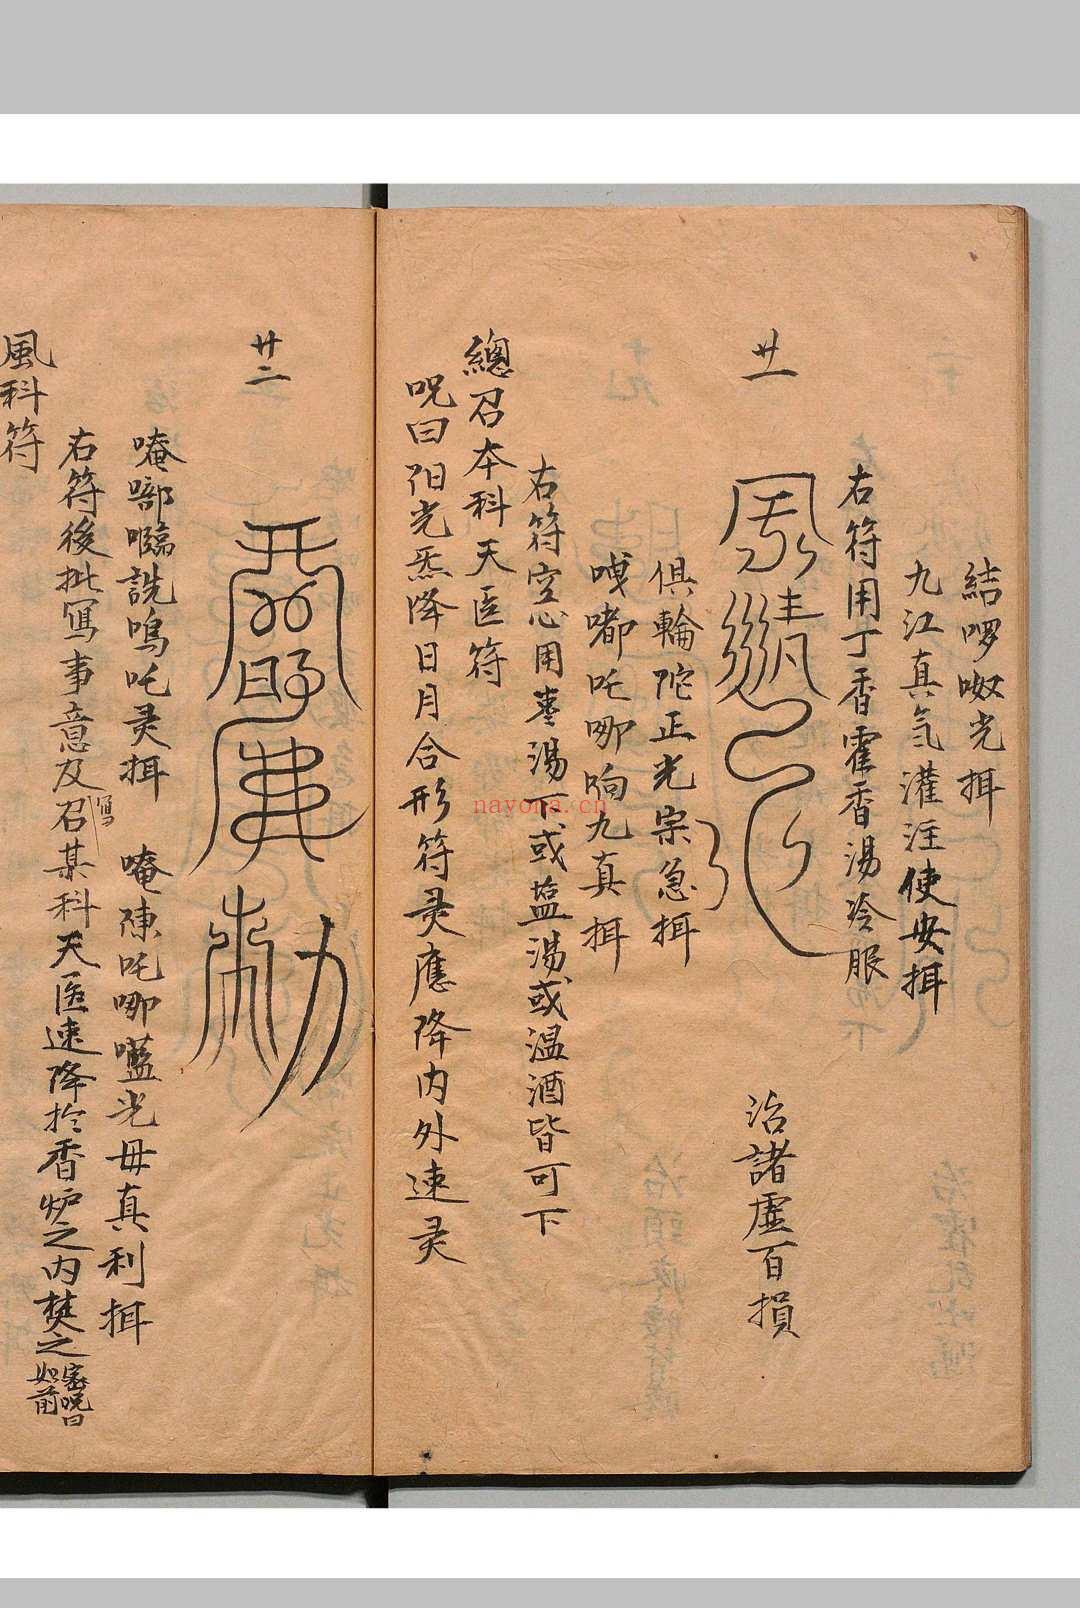 結啰呶光揖
九江真炁灌注使安揖
右符用丁香霍香湯冷服
廿一
治諸虛百損
俱輪陀正光宗急揖
嘟吒哪响九真揖
右符空心用棗湯下或盐湯或温酒皆可下
總召本科天医符
呪曰阳光炁降日月合形符灵應降内外速灵
廿二
勅
唵吒灵揖 唵吒哪光毋真利揖
右符後批写事意及写召某科天医速降扵香炉之内焚之密呪曰如前
風科符
nayona.cn